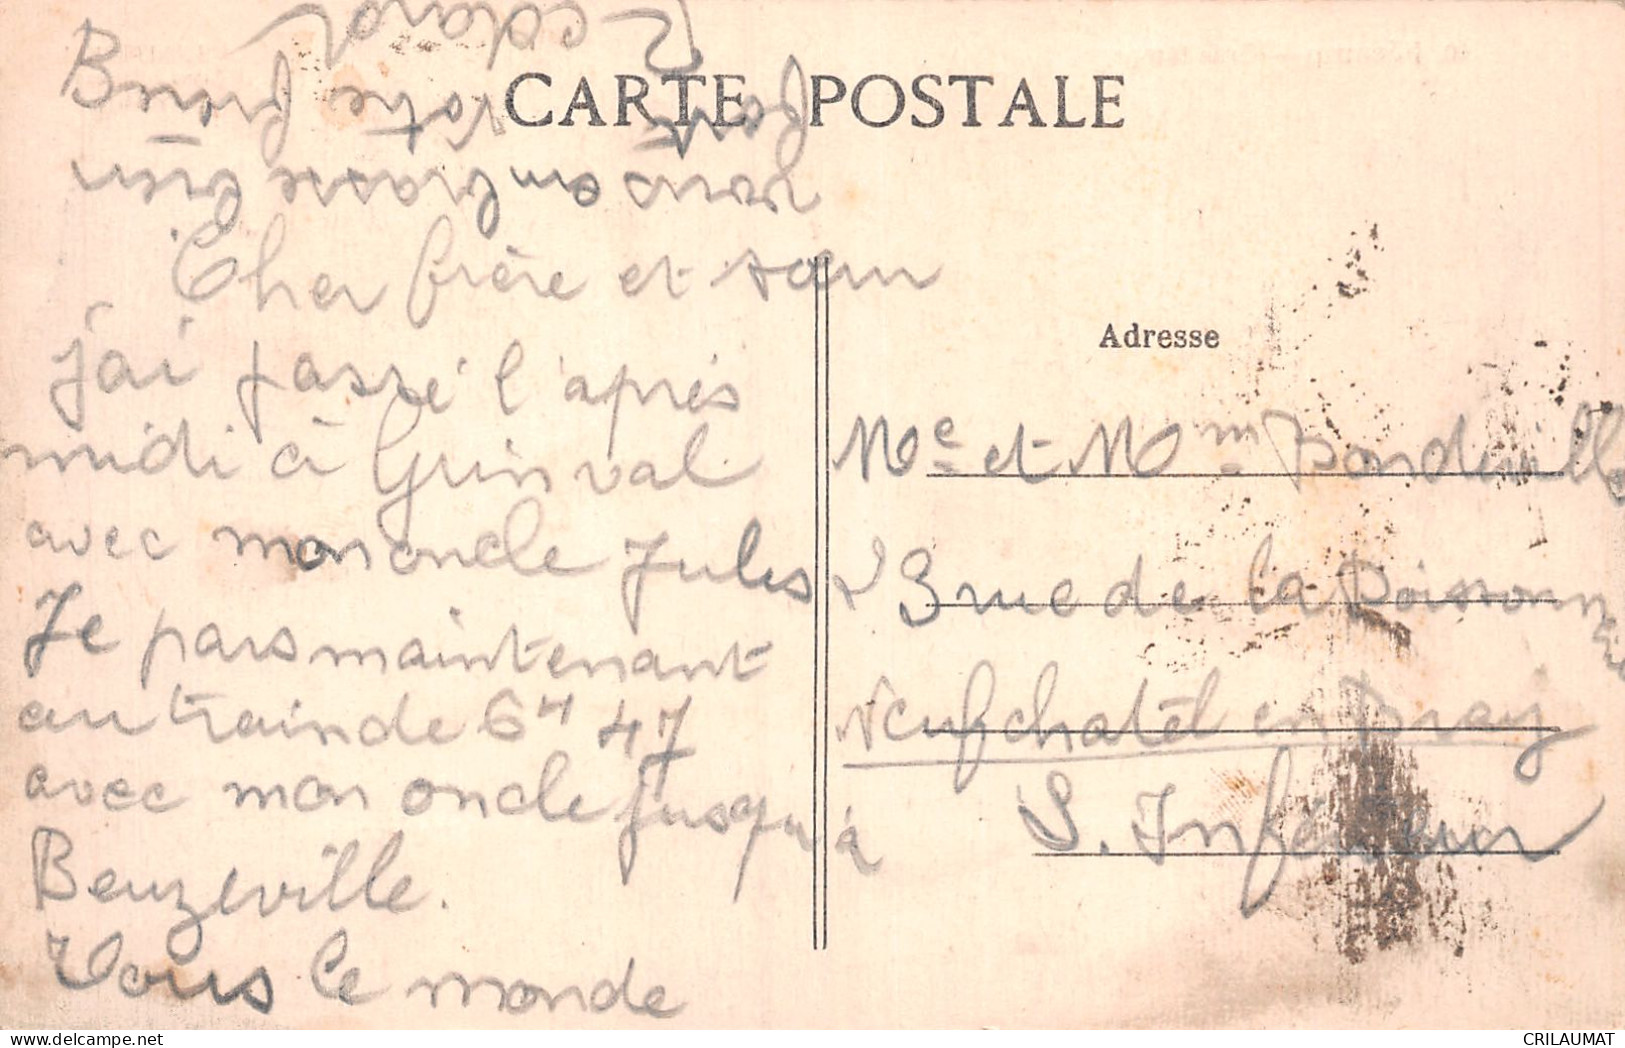 CARTE POSTALE
Cher frère et sœur
j'ai passé l'après
midi à Grinval
avec mon oncle Jules
Je pars maintenant
au train de 6h 47
avec mon oncle jusqu'à
Beuzeville.
Tous le monde
vous embrasse bien
fort Votre frère
B
Adresse
Mr et Mme
23 rue de la Poissonnerie
Neufchatel en Bray
S. Inférieur
CRILAUMAT